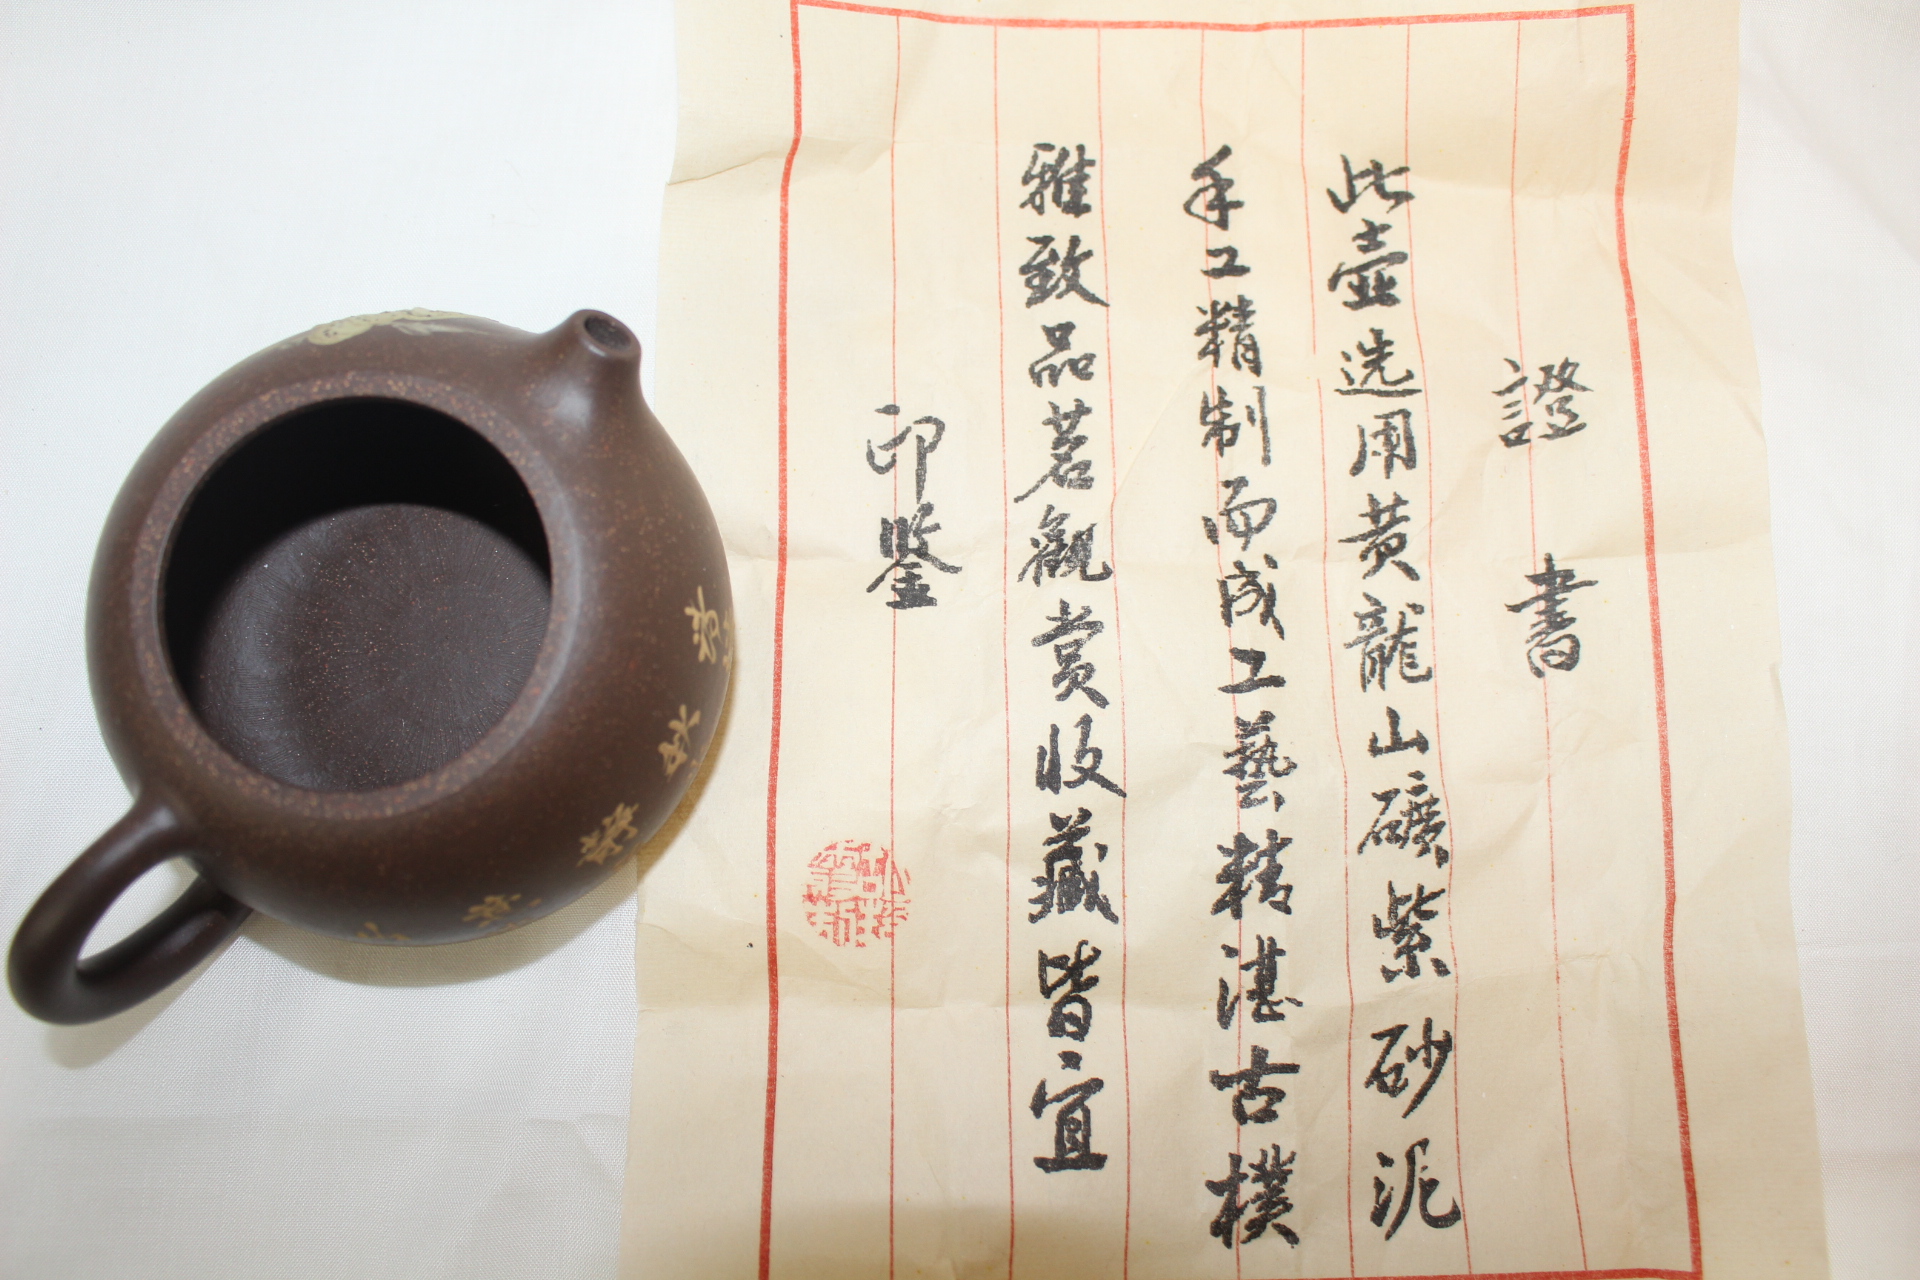 證書
此壺选用黄龍山礦紫砂泥
手工精制而成工藝精湛古樸
雅致品茗觀赏收藏皆宜
印鋻